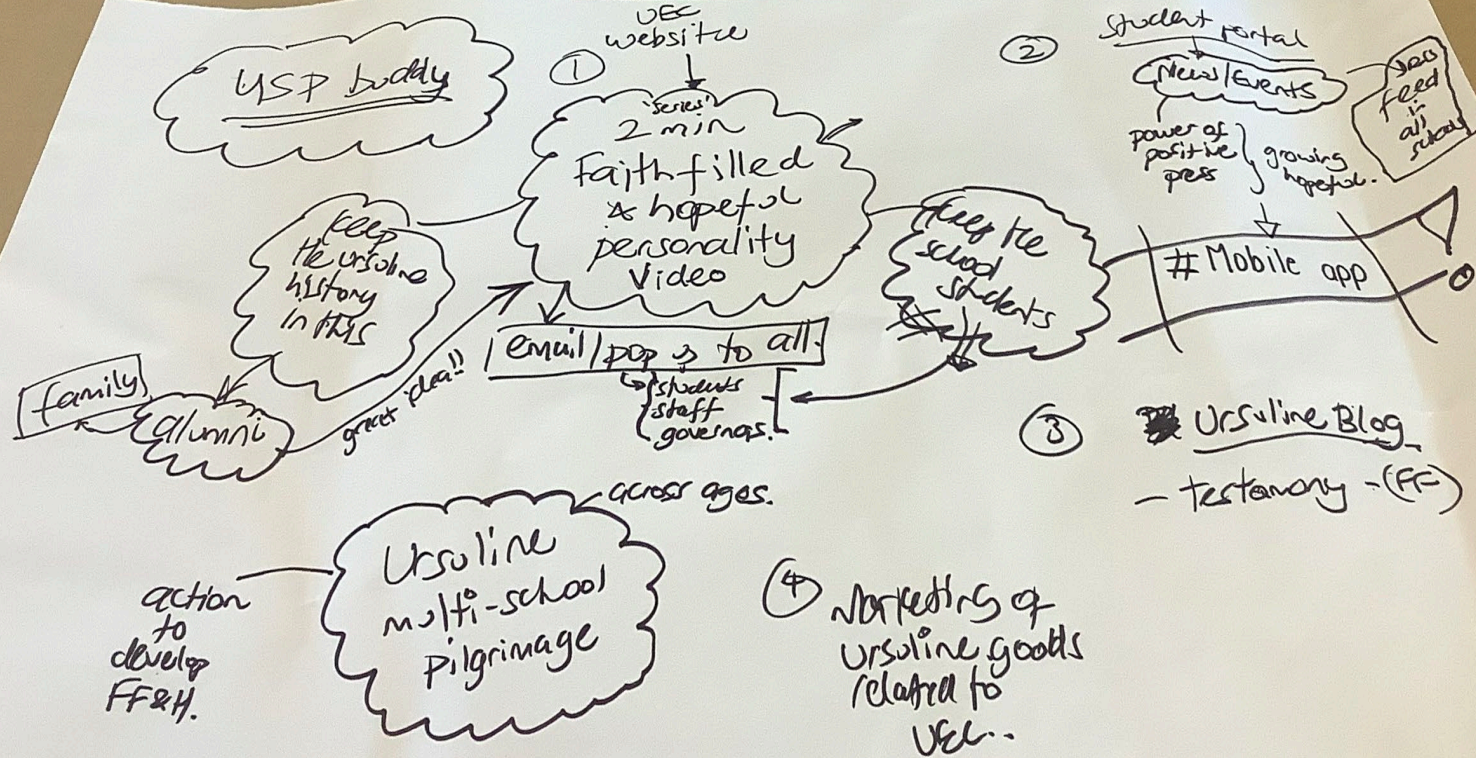 YSP buddy
UEC
website
①
'series'
2 min
Faith filled
& hopeful
personality
Video
Keep
the ursuline
history
in this
family
alumni
great idea!!
email/pop to all.
students
staff
governors.
Keep the
school
students
②
student portal
News/Events
feed
in
all
schools
power of
positive
press
growing
hopeful.
# Mobile app
③
Ursuline Blog
- testamony - (FF)
across ages.
Ursuline
multi-school
pilgrimage
action
to
develop
FF&H.
④
Marketing of
Ursuline goods
related to
UEC..